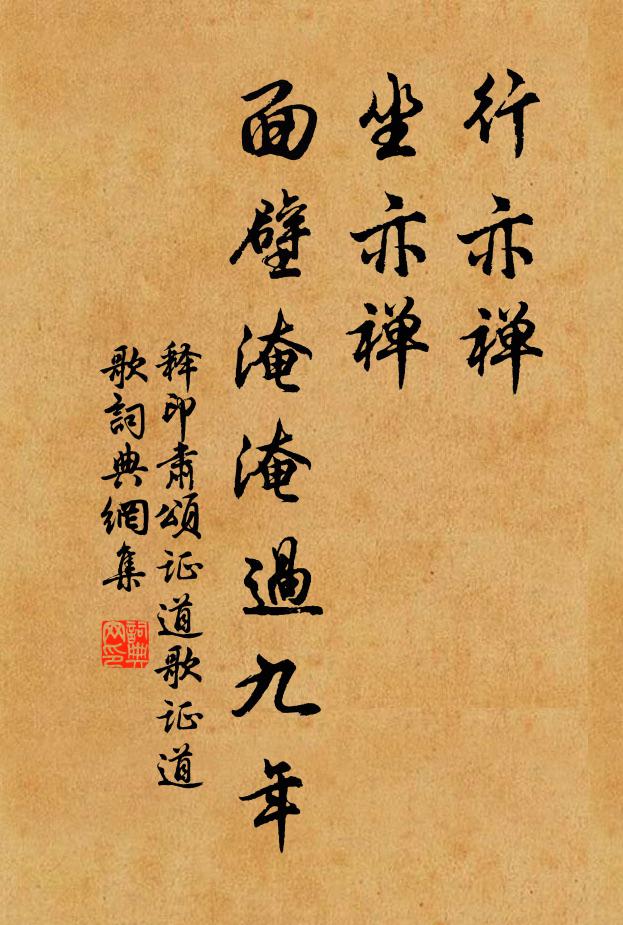 行亦禅
坐亦禅
面壁淹淹過九年
释印肃頌证道歌证道
歌詞典網集
詞典网印